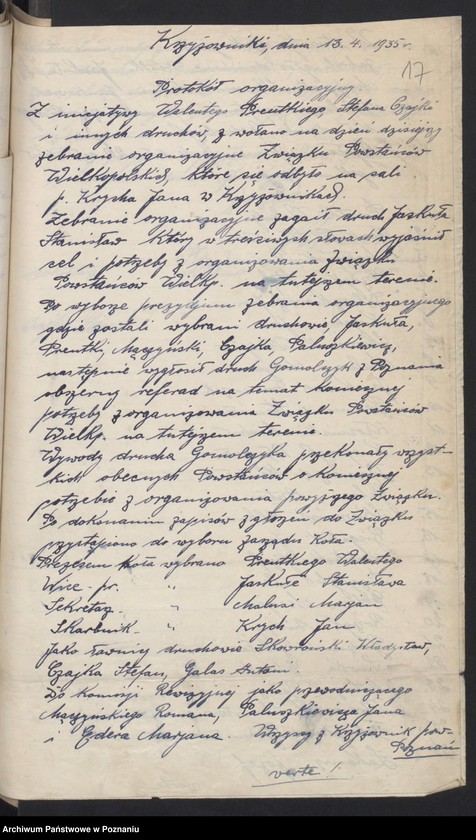 Krzyżowniki, dnia 13. 4. 1935 r.
17
Protokół organizacyjny.
Z inicjatywy Walentego Prentkiego Stefana Czajki
i innych druchów, z wołano na dzień dzisiejszy
zebranie organizacyjne Związku Powstańców
Wielkopolskich, które się odbyło na sali
p. Krycha Jana w Krzyżownikach.
Zebranie organizacyjne zagaił druch Jaskuła
Stanisław który w treściwych słowach wyjaśnił
cel i potrzeby z organizowania związku
Powstańców Wielkp. na tutejszem terenie.
Po wyborze prezydjum zebrania organizacyjnego
gdzie zostali wybrani druchowie, Jaskuła,
Prentki, Mączyński, Czajka Paluszkiewicz,
następnie wygłosił druch Gomolczyk z Poznania
obszerny referad na temat koniecznej
potrzeby z organizowania Związku Powstańców
Wielkp. na tutejszem terenie.
Wywody drucha Gomolczyka przekonały wszyst-
kich obecnych Powstańców o koniecznej
potrzebie z organizowania powyższego Związku.
Po dokonaniu zapisów zgłoszeń do Związku
przystąpiono do wyboru zarządu Koła.
Prezesem Koła wybrano Prentkiego Walentego
Wice-pr. " Jaskułę Stanisława
Sekretarz " Marjan
Skarbnik " Krych Jan
jako ławnicy druchowie Skowroński Władysław,
Czajka Stefan, Galas Antoni.
Do Komisji Rewizyjnej jako przewodniczącego
Mączyńskiego Romana, Paluszkiewicza Jana
i Edera Marjana. Wszyscy z Krzyżownik pow-
Poznań
verte!
Archiwum Państwowe w Poznaniu